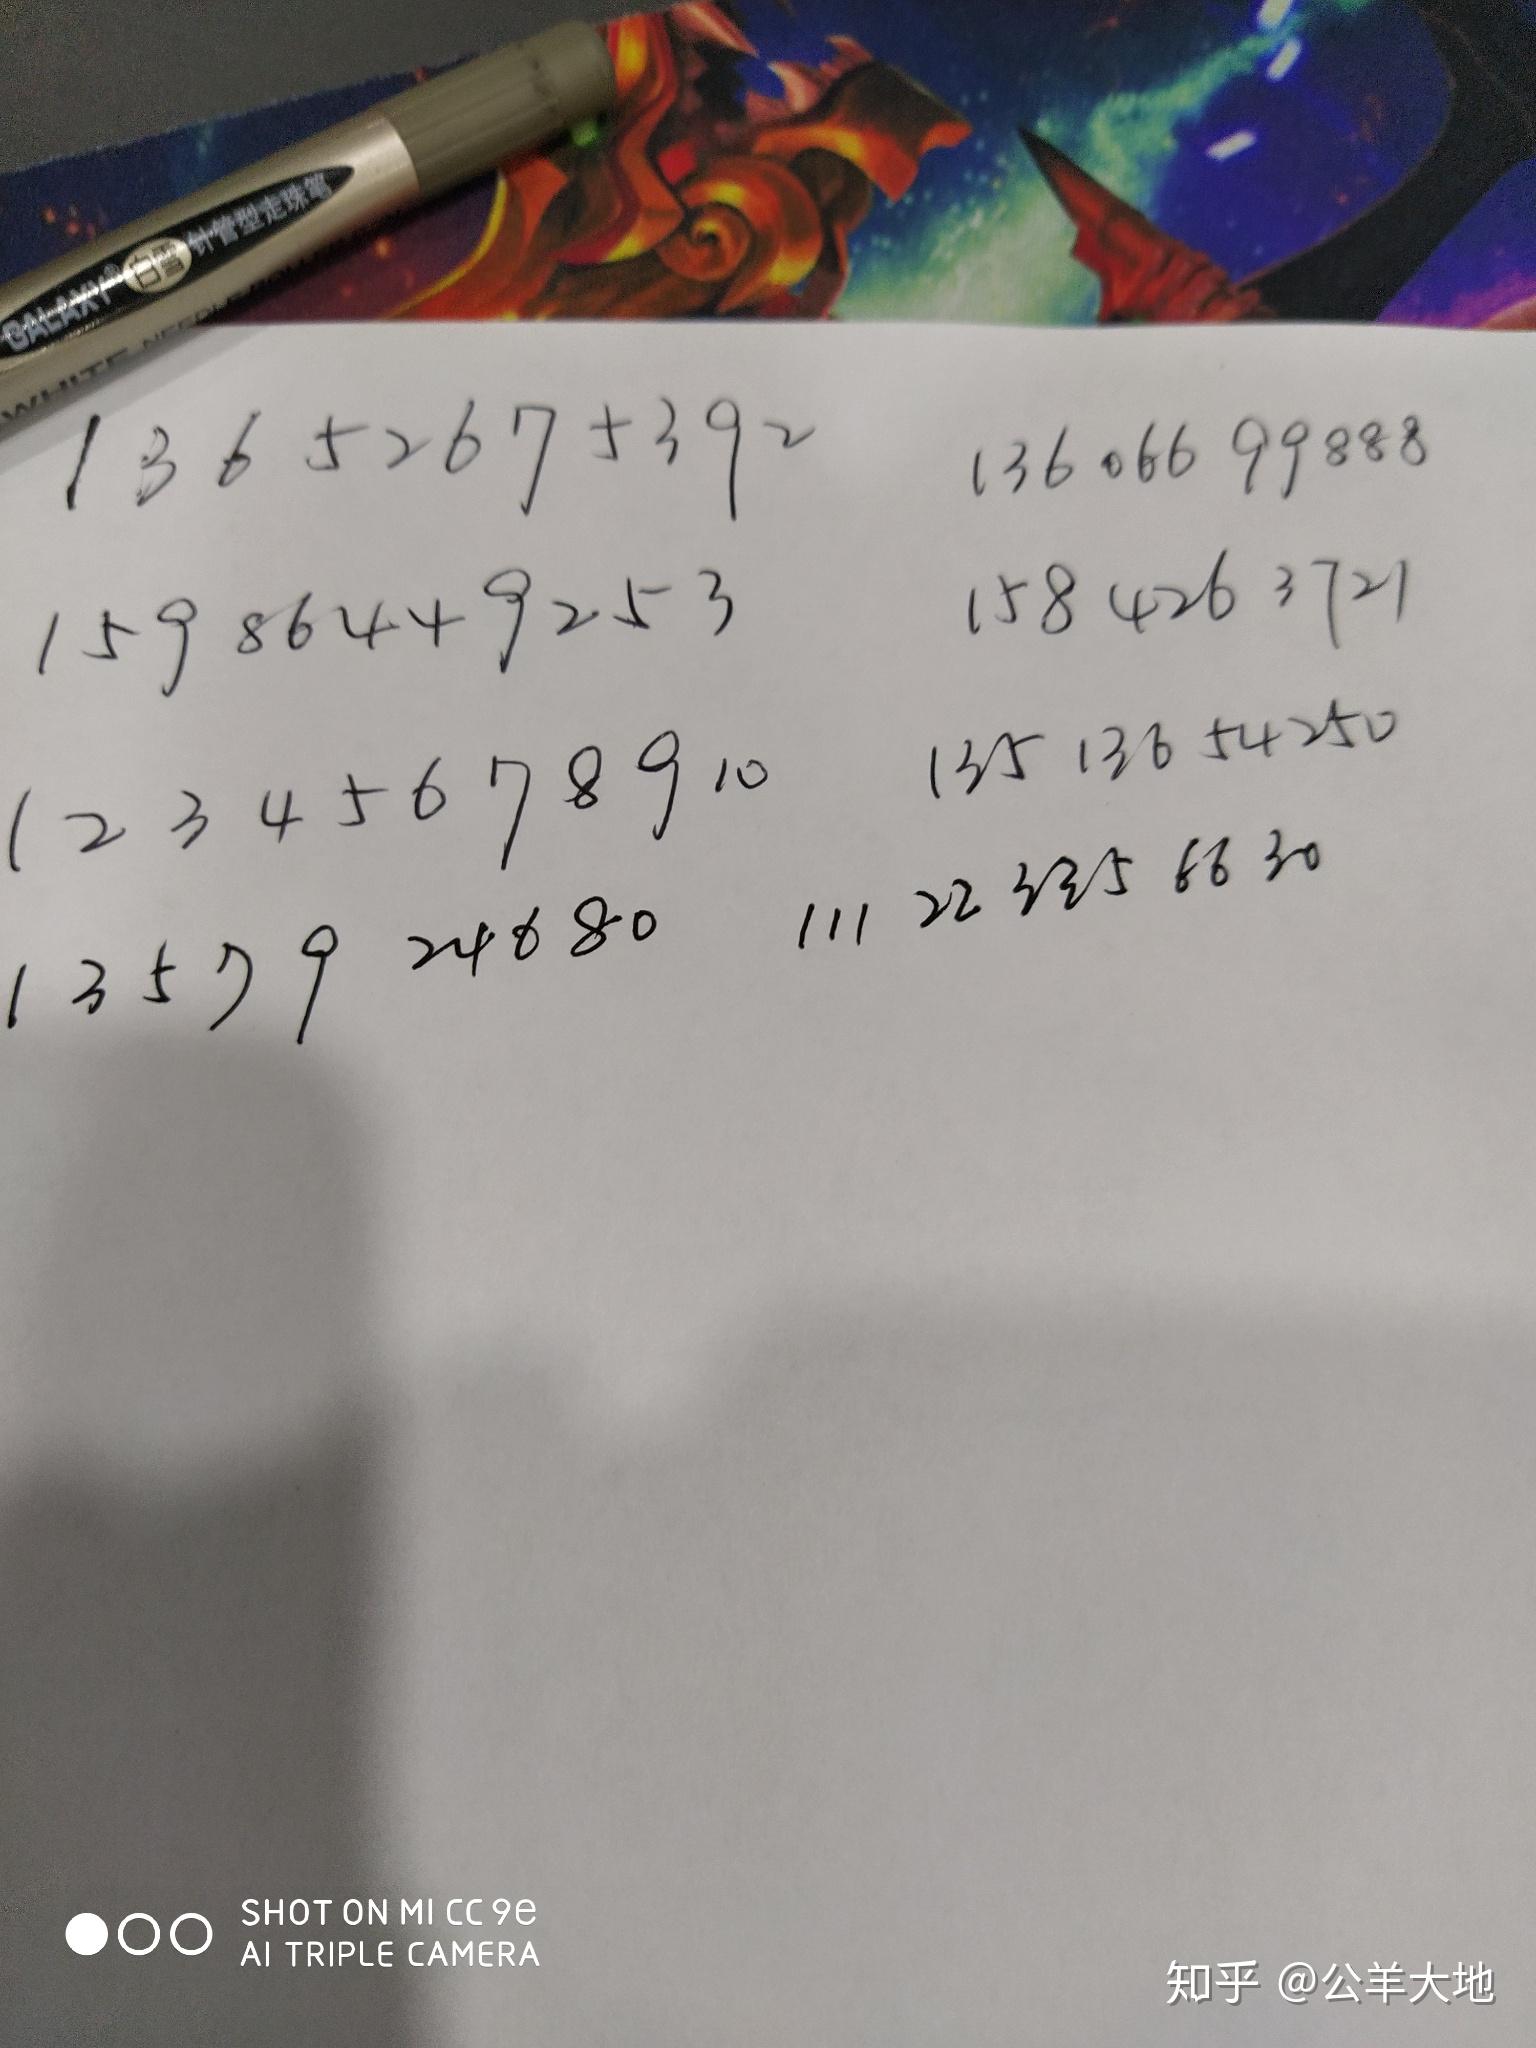 GALAXY® 白雪 针管型走珠笔
WHITE NEEDLE
13652675392 13606699888
15986449253 1584263721
12345678910 13513654250
1357924680 1112233356630
SHOT ON MI CC 9e
AI TRIPLE CAMERA
知乎 @公羊大地